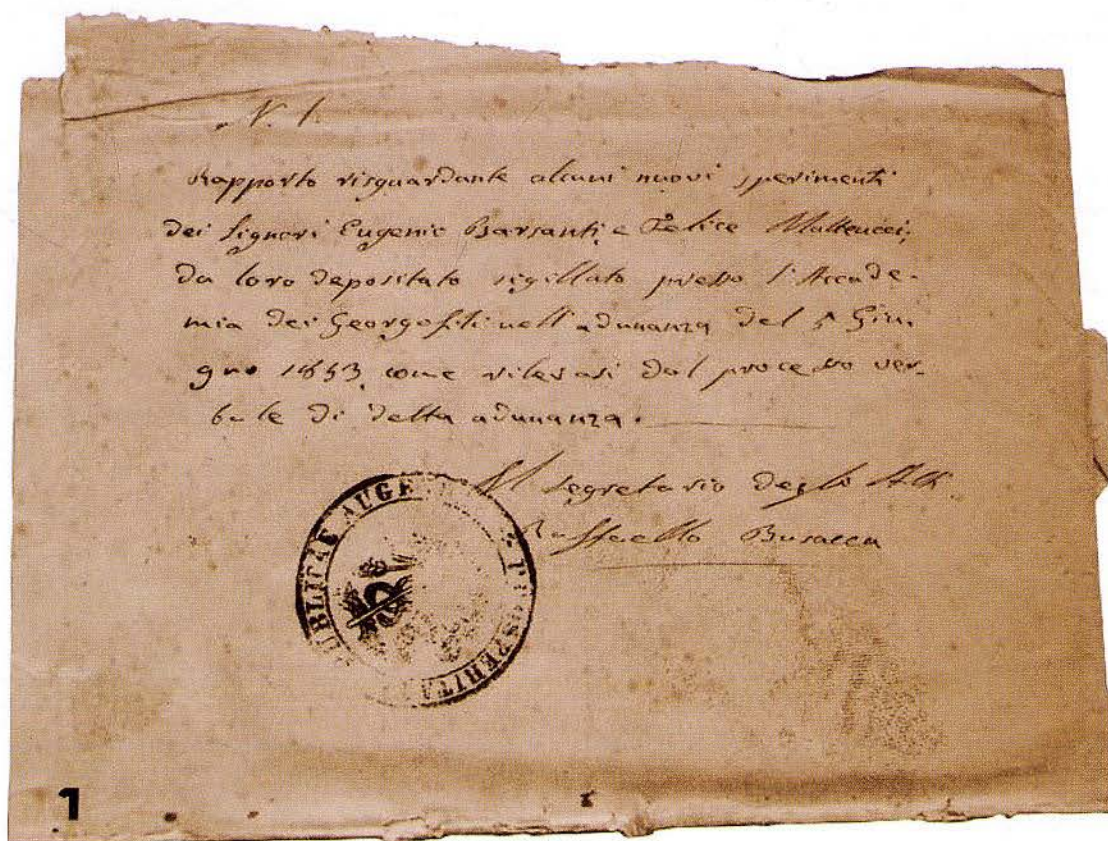 N. 1.
Rapporto risguardante alcuni nuovi sperimenti
dei Signori Eugenio Barsanti, e Felice Matteucci,
da loro depositato sigillato presso l'Accade-
mia dei Georgofili nell'adunanza del 5 Giu-
gno 1853, come rilevasi dal processo ver-
bale di detta adunanza.
Il segretario degli Atti
Raffaello Busacca
PUBLICAE AUGE PROSPERITA
1